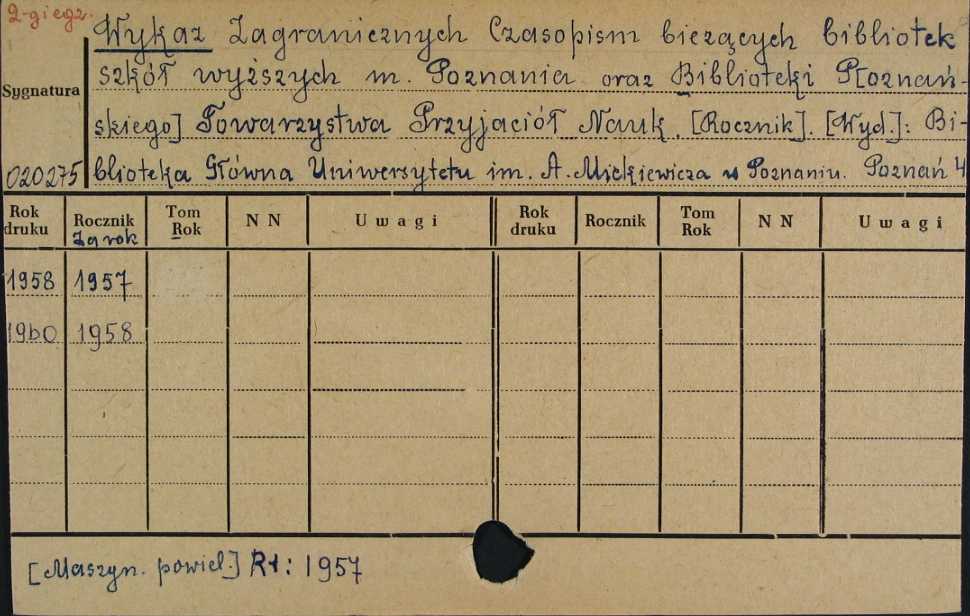 2-giegz.
Wykaz Zagranicznych Czasopism bieżących bibliotek
szkół wyższych m. Poznania oraz Biblioteki P[oznań-
Sygnatura
skiego] Towarzystwa Przyjaciół Nauk. [Rocznik]. [Wyd.]: Bi-
020275 blioteka Główna Uniwersytetu im. A. Mickiewicza w Poznaniu. Poznań 4
Rok druku Rocznik Za rok Tom Rok N N Uwagi Rok druku Rocznik Tom Rok N N Uwagi
1958 1957
1960 1958
[Maszyn. powiel.] R1: 1957